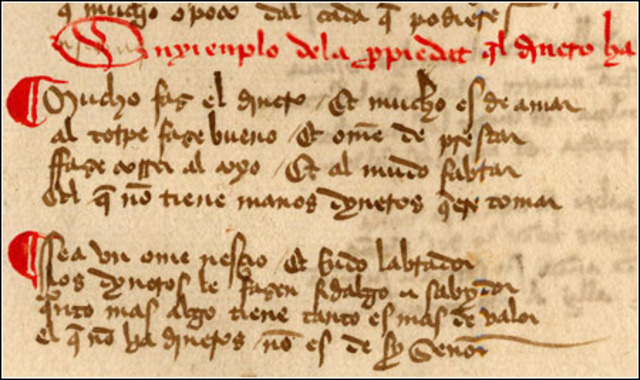 q̄ mucho o poco dal cada q̄ podieres
Enxienplo dela propiedat q̄l dinero ha
Mucho faz el dinero / Et mucho es de amar
al torpe faze bueno / Et om̄e de prestar
ffaze correr al coxo / Et al mudo fablar
el q̄ nō tiene manos dyneros q̄ere tomar
Sea vn ome nesçio / Et Rudo labrador
los dyneros le fazen fidalgo e sabydor
q̄nto mas algo tiene tanto es mas de valor
el q̄ nō ha dineros / nō es de sy Señor